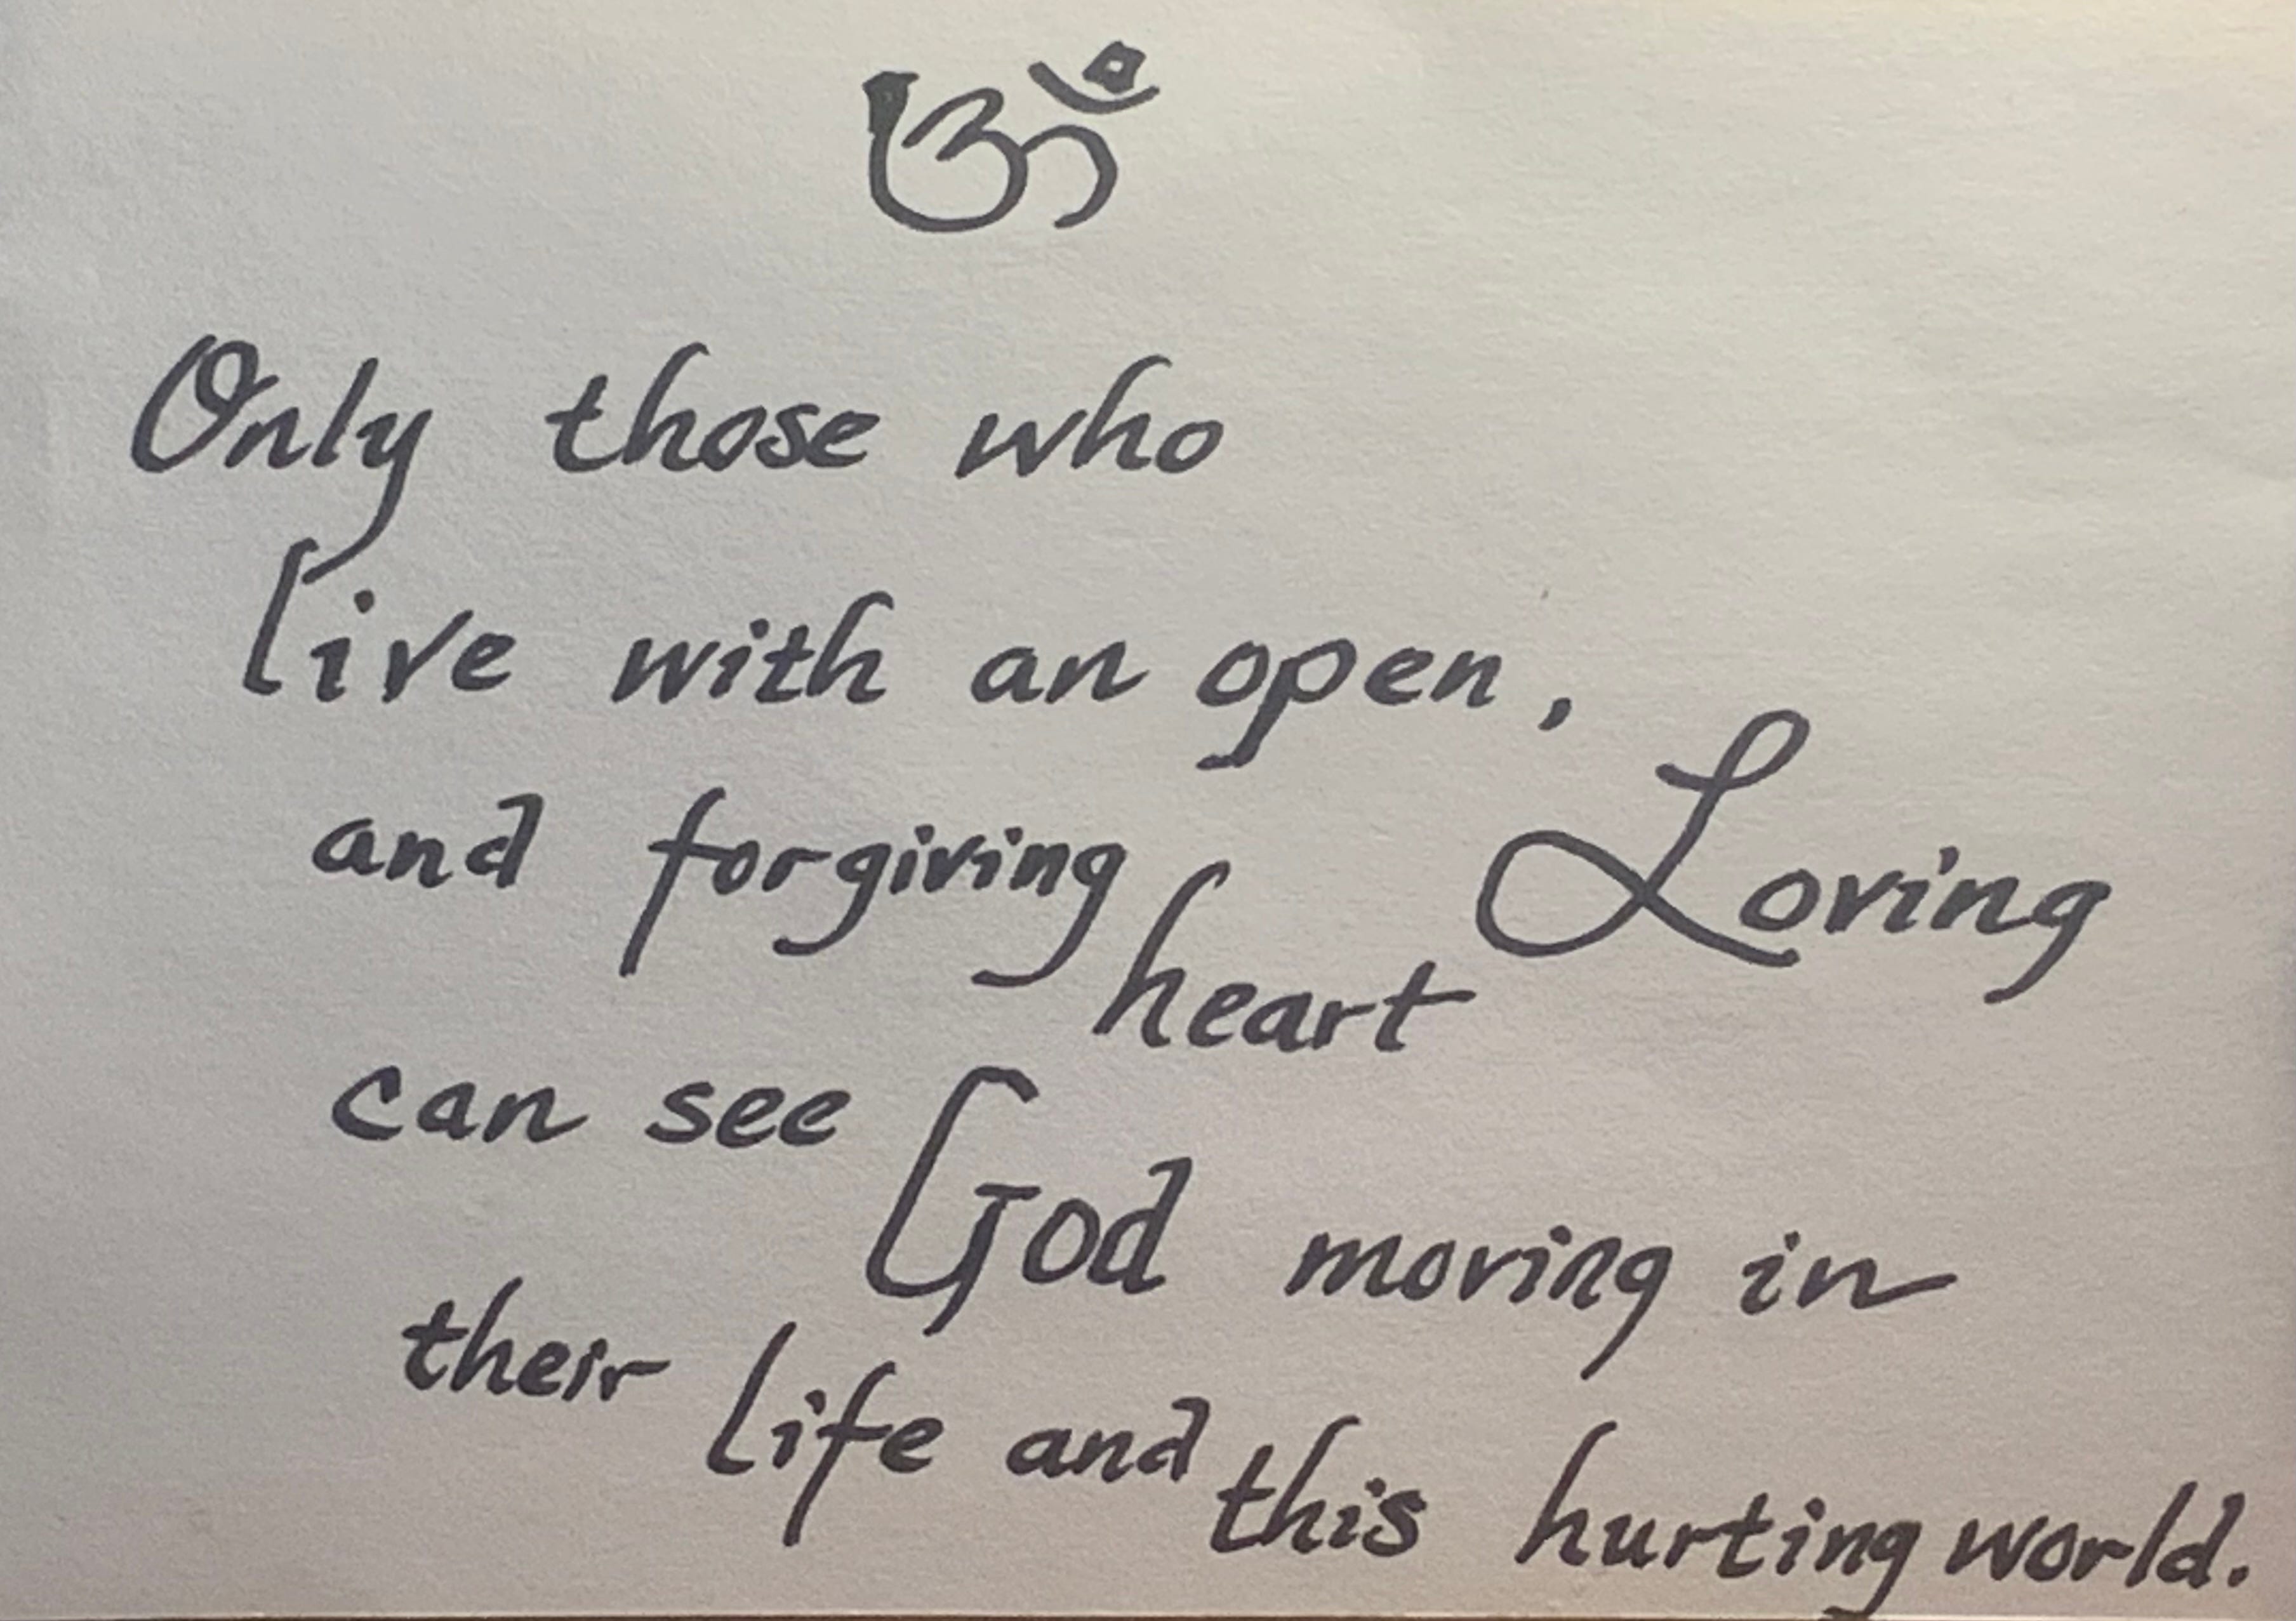 ॐ
Only those who
live with an open,
Loving
and forgiving
heart
can see
God moving in
their life and
this hurting world.